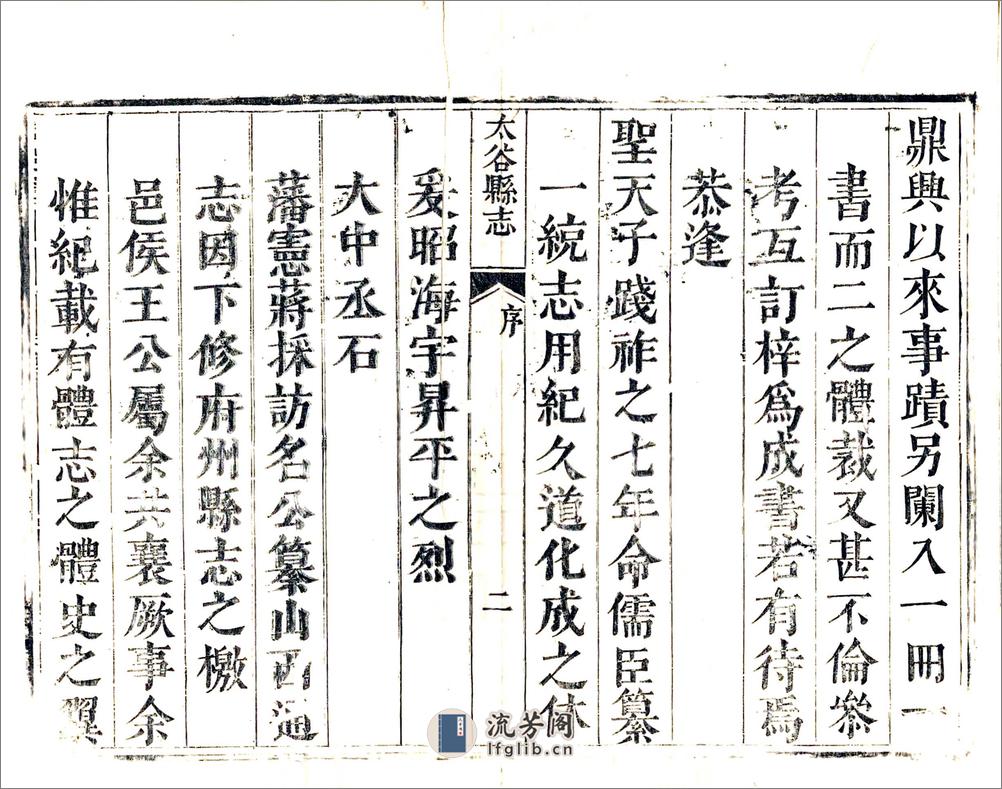 鼎興以來事蹟另闌入一冊一
書而二之體裁又甚不倫叅
考互訂梓爲成書若有待焉
恭逢
聖天子踐祚之七年命儒臣纂
一統志用紀久道化成之休
爰昭海宇昇平之烈
太谷縣志
序
二
大中丞石
藩憲蔣採訪名公纂山西通
志因下修府州縣志之檄
邑侯王公屬余共襄厥事余
惟紀載有體志之體史之翼
流芳阁
lfglib.cn